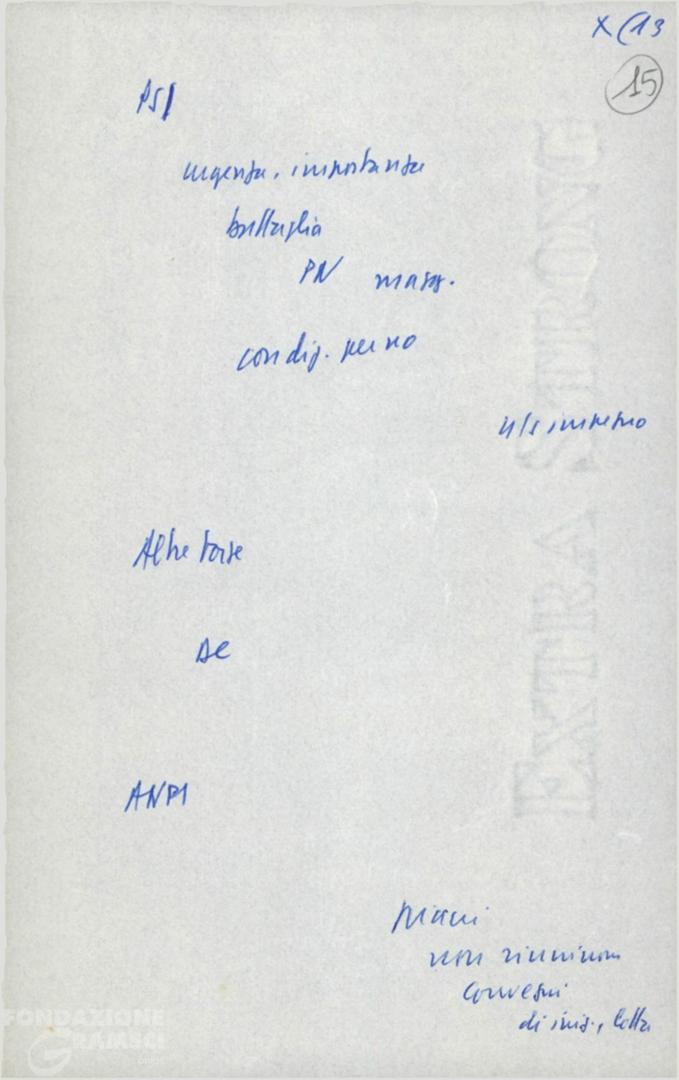 X/13
15
PSI
urgenza, importanza
battaglia
PN mass.
condiz. perno
n/s impegno
Altre forze
DC
ANPI
piani
non riunioni
convegni
di iniz., lotta
EXTRA STRONG
FONDAZIONE
GRAMSCI